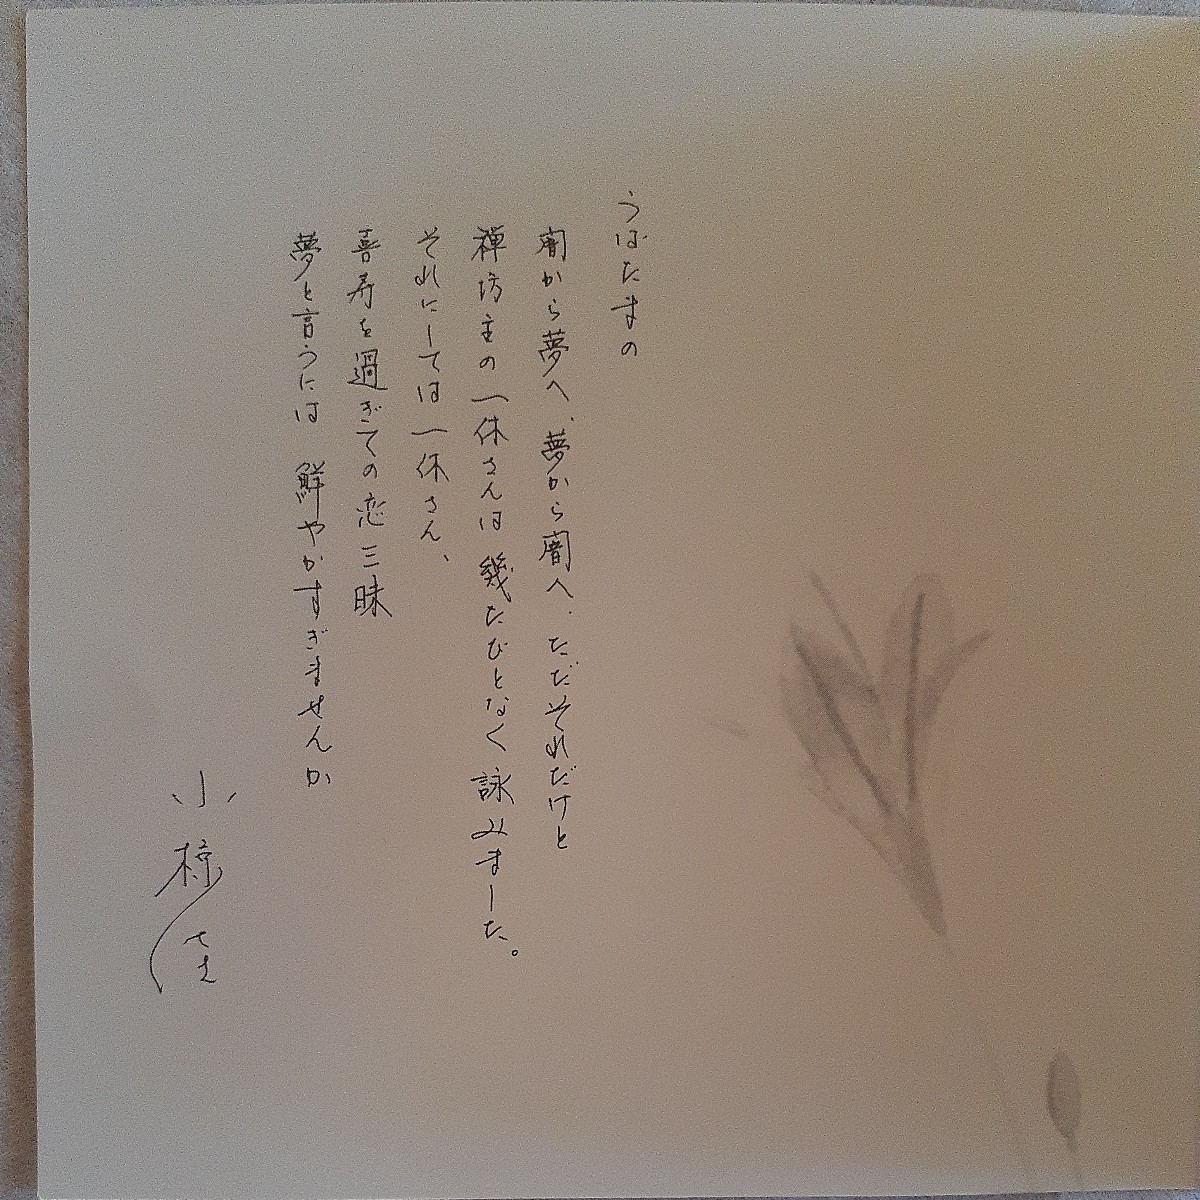 うばたまの
闇から夢へ、夢から闇へ、ただそれだけと
禅坊主の一休さんは幾たびとなく詠みました。
それにしては一休さん、
喜寿を過ぎての恋三昧
夢と言うには 鮮やかすぎませんか
小椋佳